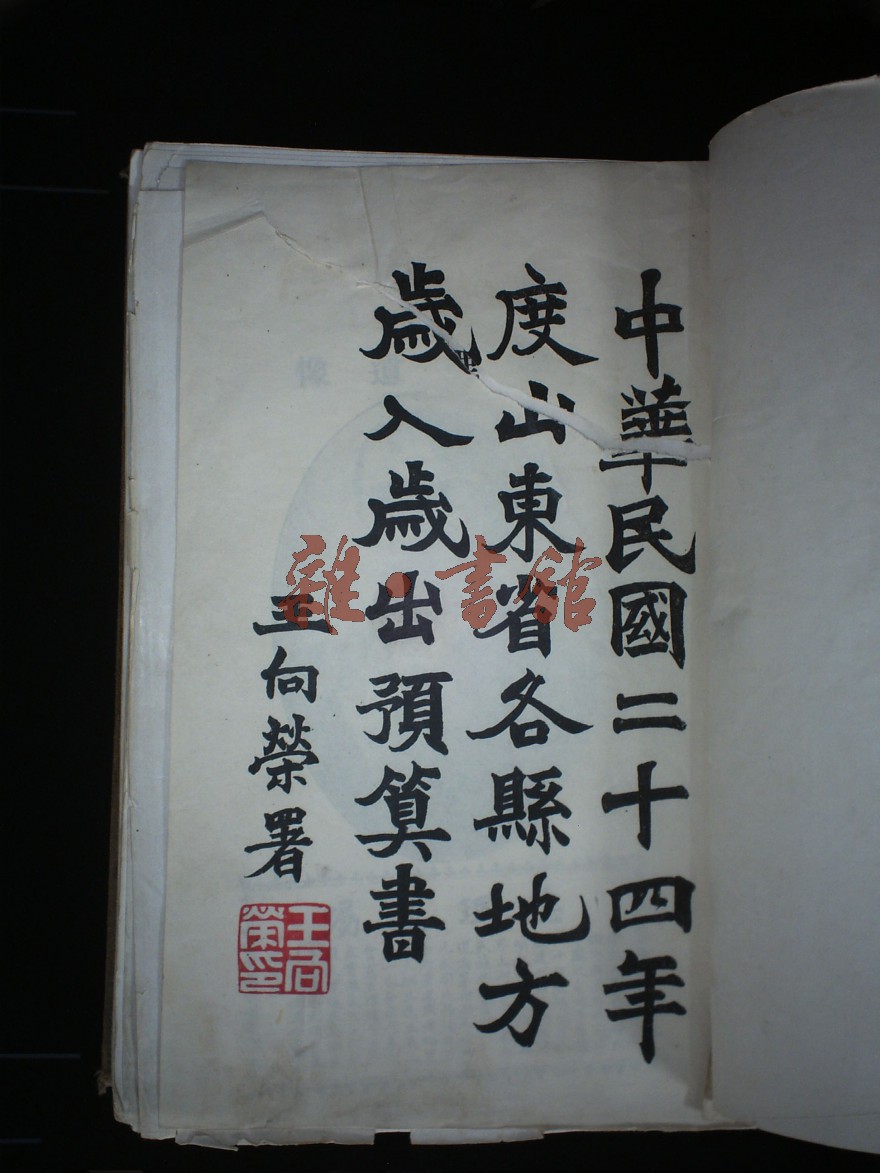 中華民國二十四年
度山東省各縣地方
歲入歲出預算書
王向榮署
王向榮印
雜·書館